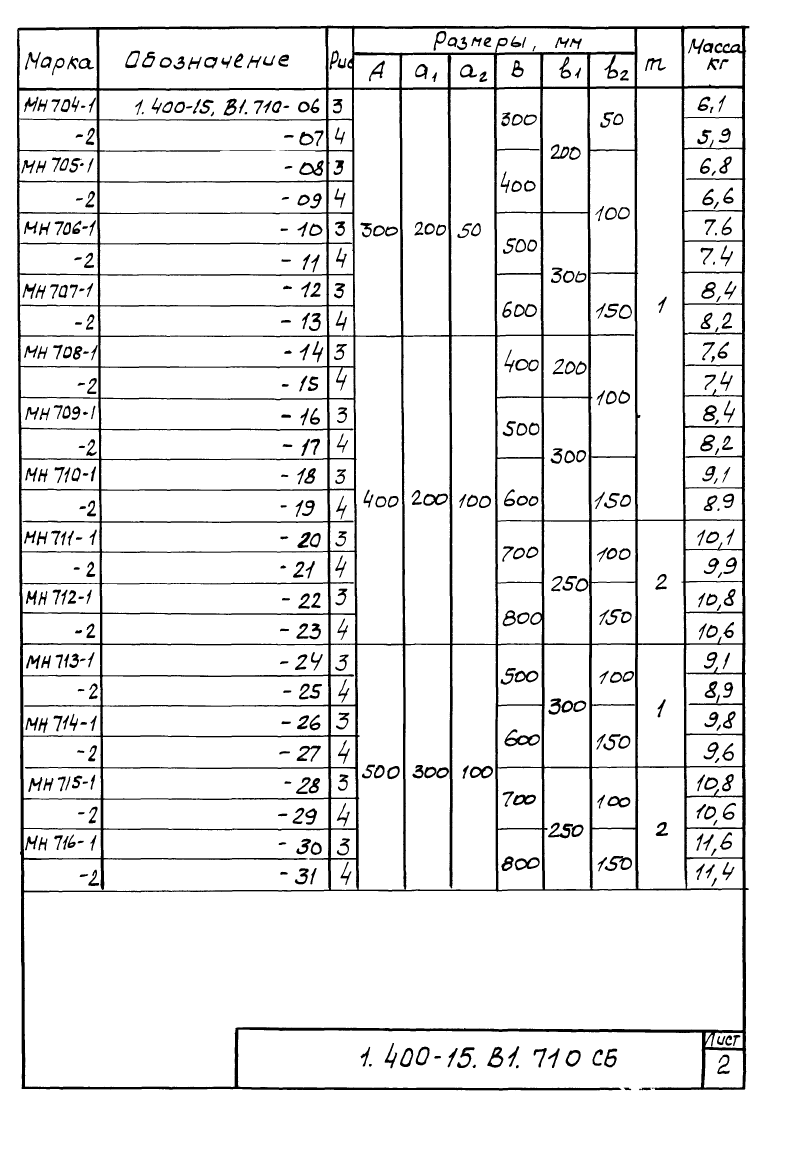 Марка Обозначение Рис Размеры, мм m Масса кг
А a1 a2 В в1 в2
МН704-1 1.400-15, В1.710- 06 3 300 200 50 300 200 50 1 6,1
-2 -07 4 5,9
МН705-1 -08 3 400 100 6,8
-2 -09 4 6,6
МН706-1 -10 3 500 300 7.6
-2 -11 4 7.4
МН707-1 -12 3 600 150 8,4
-2 -13 4 8,2
МН708-1 -14 3 400 200 100 400 200 100 7,6
-2 -15 4 7,4
МН709-1 -16 3 500 300 8,4
-2 -17 4 8,2
МН710-1 -18 3 600 150 9,1
-2 -19 4 8.9
МН711-1 -20 3 700 250 100 2 10,1
-2 -21 4 9,9
МН712-1 -22 3 800 150 10,8
-2 -23 4 10,6
МН713-1 -24 3 500 300 100 500 300 100 1 9,1
-2 -25 4 8,9
МН714-1 -26 3 600 150 9,8
-2 -27 4 9,6
МН715-1 -28 3 700 250 100 2 10,8
-2 -29 4 10,6
МН716-1 -30 3 800 150 11,6
-2 -31 4 11,4
1.400-15. В1. 710 СБ
Лист
2